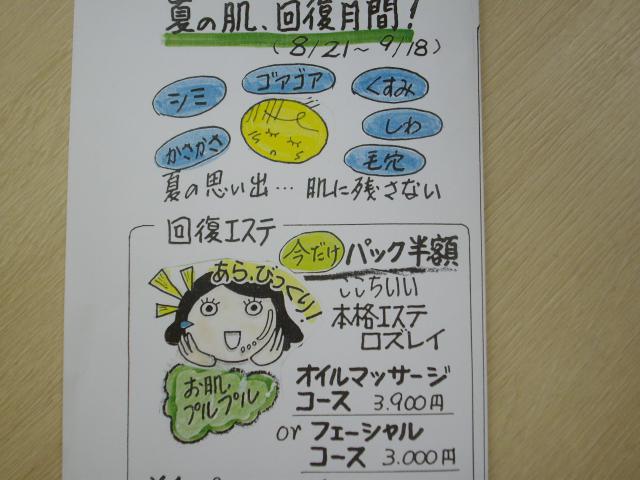 夏の肌、回復月間!
(8/21〜9/18)
シミ
ゴアゴア
くすみ
かさかさ
しわ
毛穴
夏の思い出…肌に残さない
回復エステ
今だけ
パック半額
あら、びっくり!
ここちいい
本格エステ
ロズレイ
お肌
プルプル
オイルマッサージ
コース 3.900円
or フェーシャル
コース 3.000円